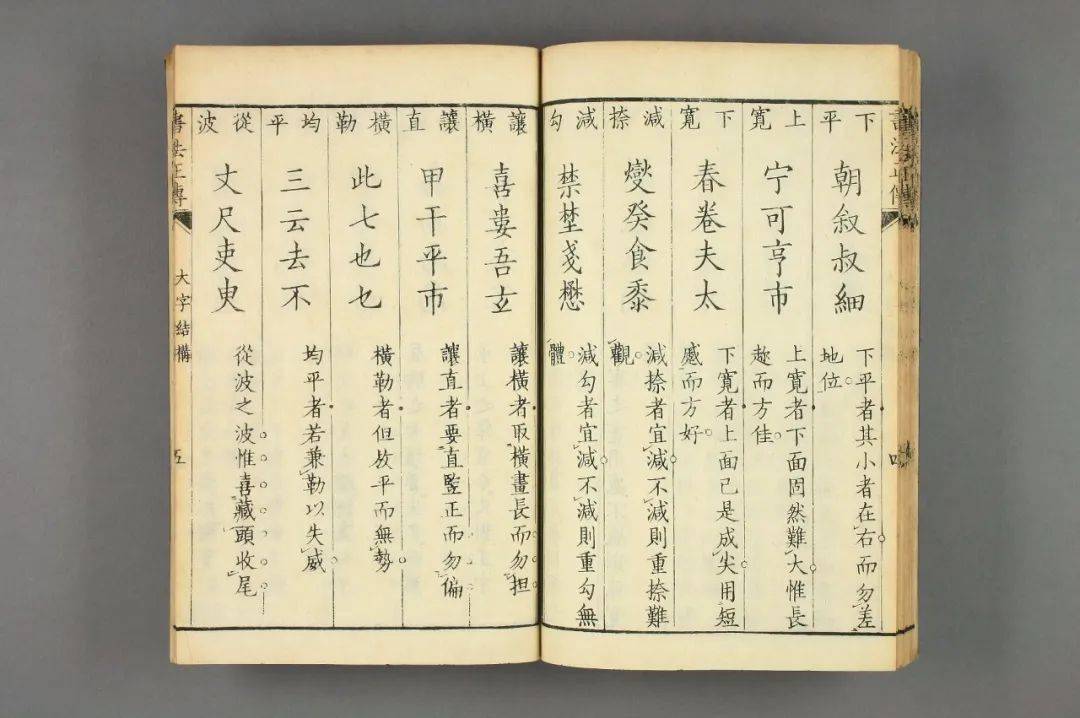 書法正傳
下平
朝叙叔細
下平者其小者在右而勿差
地位
上寬
宁可亨市
上寬者下面固然難大惟長
趂而方佳
下寬
春卷夫太
下寬者上面已是成尖用短
慼而方好
減捺
燮癸食黍
減捺者宜減不減則重捺難
觀
減勾
禁埜戔懋
減勾者宜減不減則重勾無
體
讓橫
喜婁吾玄
讓橫者取橫畫長而勿担
讓直
甲干平市
讓直者要直竪正而勿偏
橫勒
此七也乜
橫勒者但放平而無勢
均平
三云去不
均平者若兼勒以失威
從波
丈尺吏臾
從波之波惟喜藏頭收尾
書法正傳
大字結構
五